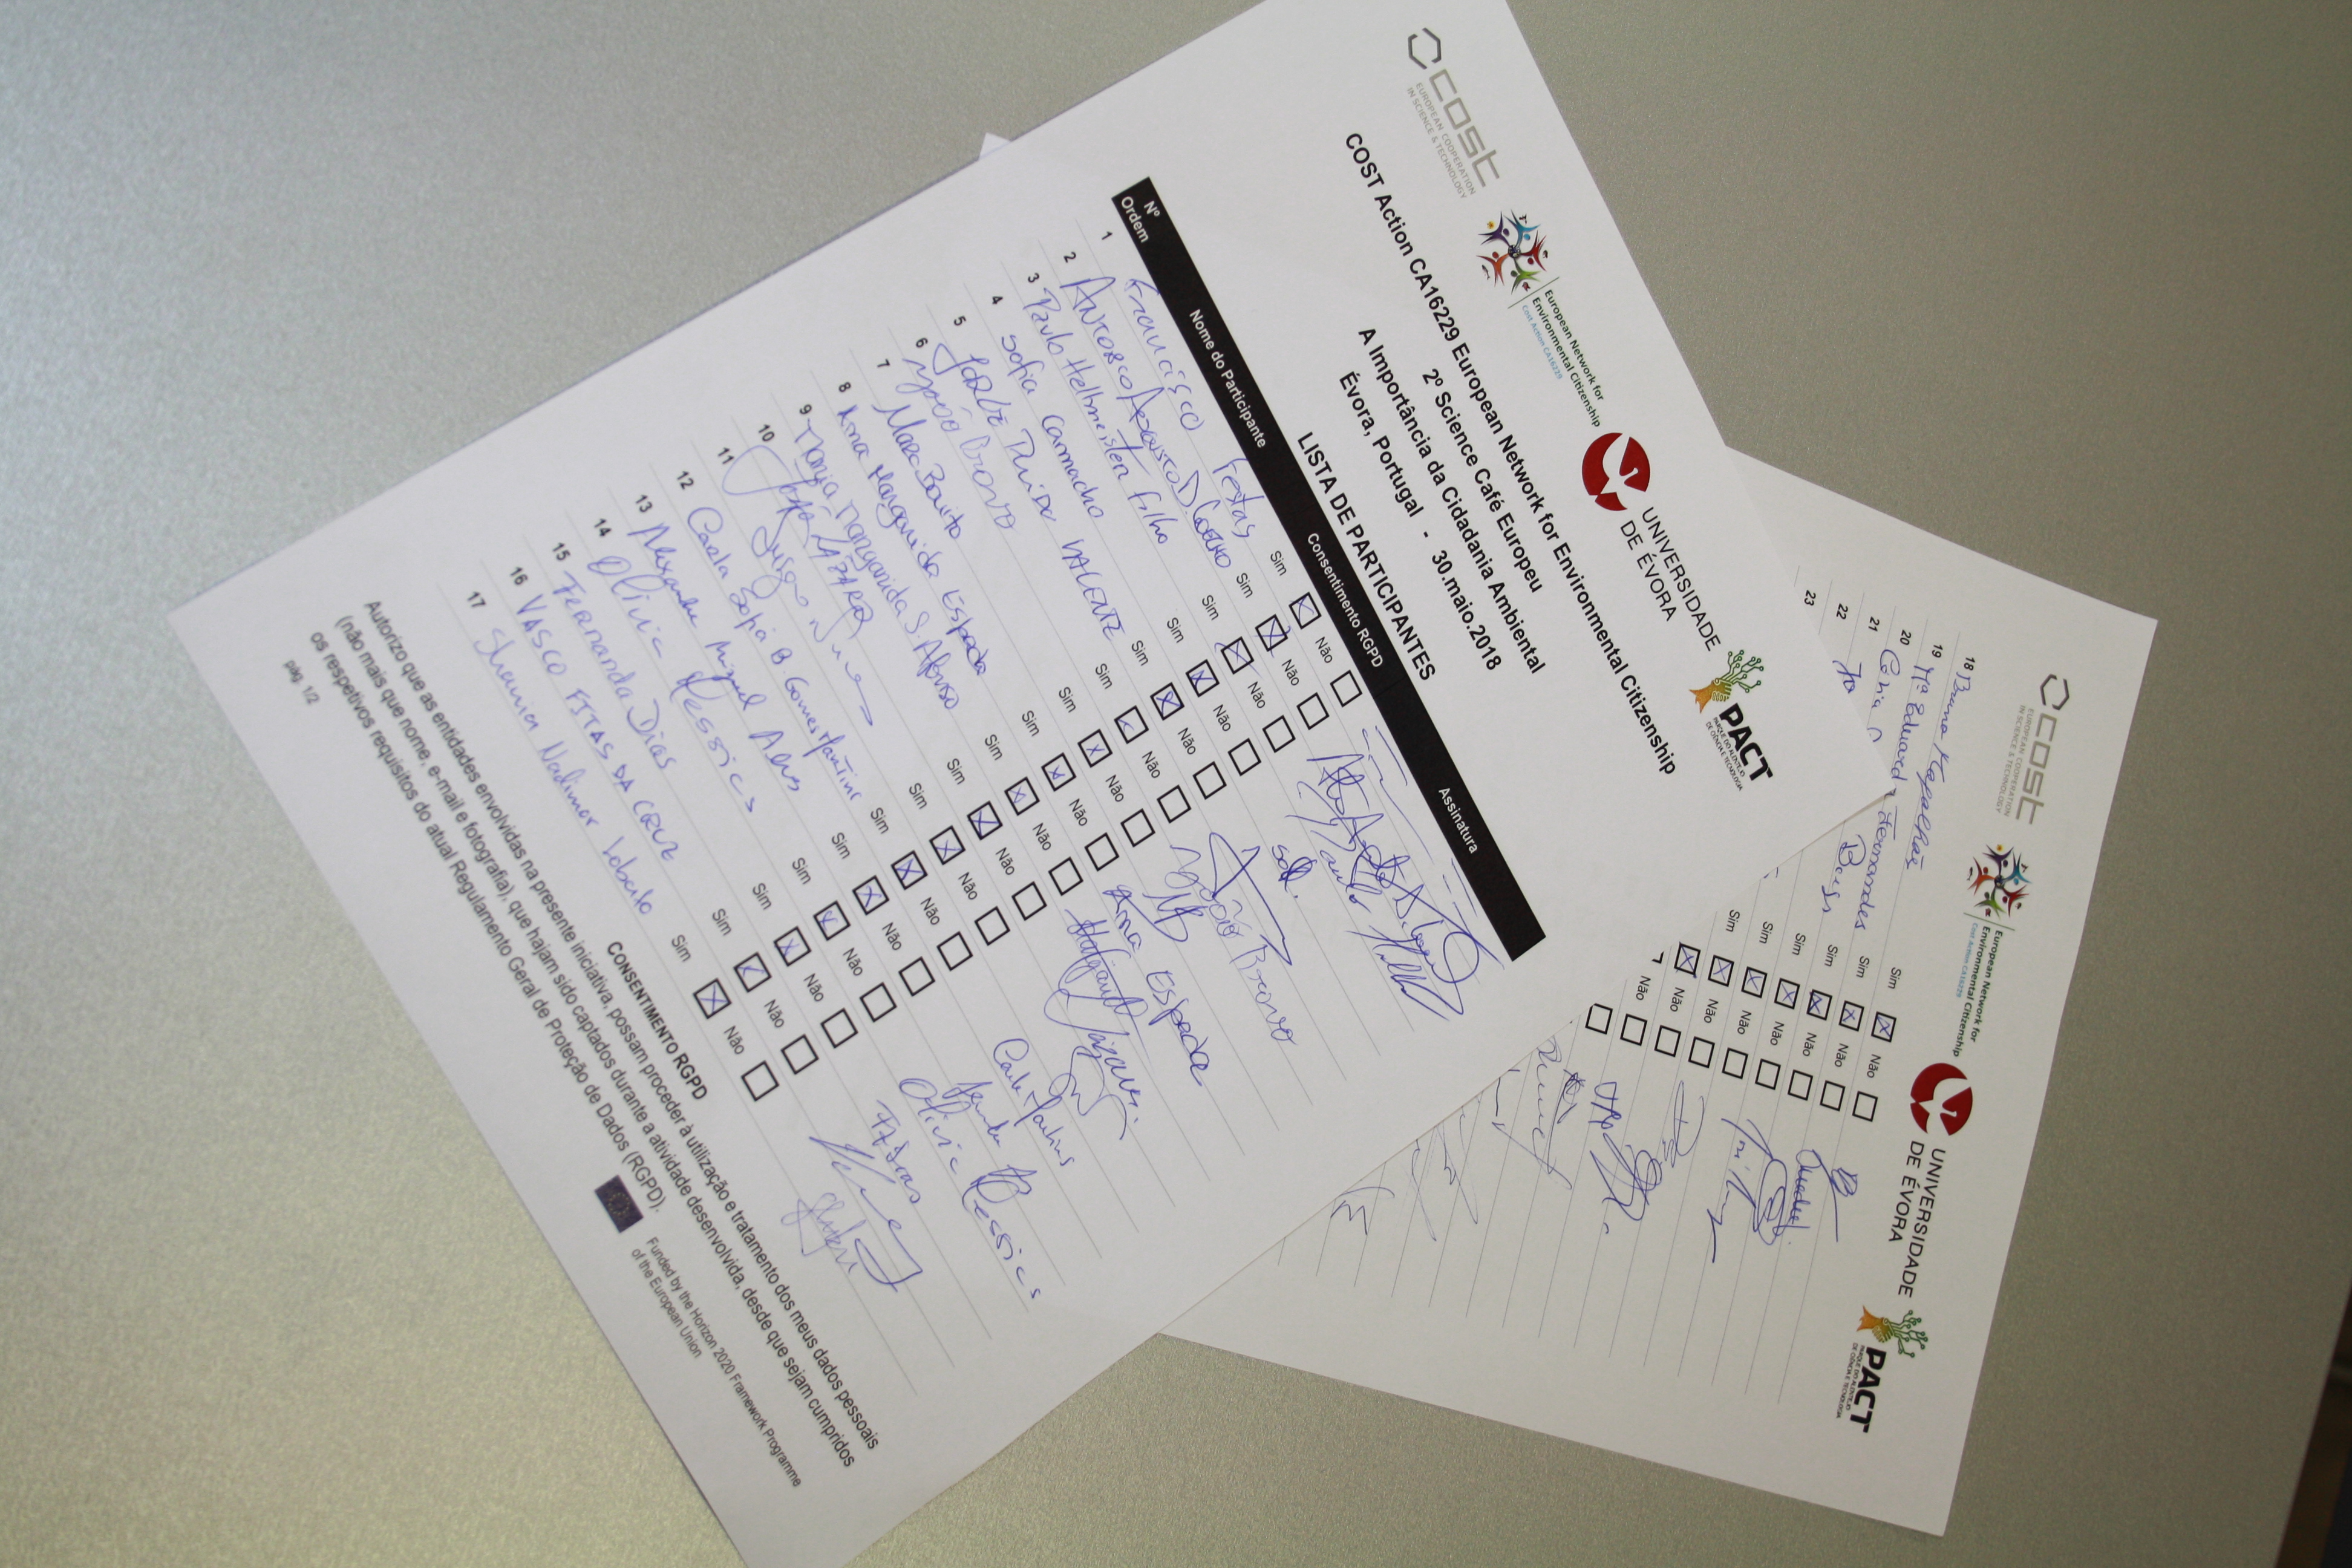 COST
EUROPEAN COOPERATION
IN SCIENCE & TECHNOLOGY
European Network for
Environmental Citizenship
Cost Action CA16229
UNIVERSIDADE
DE ÉVORA
PACT
PARQUE DO ALENTEJO
DE CIÊNCIA E TECNOLOGIA
COST Action CA16229 European Network for Environmental Citizenship
2º Science Café Europeu
A Importância da Cidadania Ambiental
Évora, Portugal - 30.maio.2018
LISTA DE PARTICIPANTES
Nº Ordem Nome do Participante Consentimento RGPD Assinatura
1 Francisco Sim Não
2 António Augusto D. Coelho Sim Não
3 Paulo Hellmeister Filho Sim Não Paulo
4 Sofia Carmacho Sim Não
5 Jorge VALENTE Sim Não
6 Bravo Sim Não Bravo
7 Mara Bonito Sim Não
8 Ana Margarida Espada Sim Não Ana Espada
9 Maria Margarida S. Afonso Sim Não
10 Sim Não
11 Sim Não
12 Carla Sofia B Gomes Martins Sim Não Carla Martins
13 Alexandre Miguel Alves Sim Não
14 Olívia Sim Não Olívia
15 Fernanda Dias Sim Não FDias
16 VASCO FITAS DA CRUZ Sim Não
17 Shamia Nadimor Loberto Sim Não
CONSENTIMENTO RGPD
Autorizo que as entidades envolvidas na presente iniciativa, possam proceder à utilização e tratamento dos meus dados pessoais
(não mais que nome, e-mail e fotografia), que hajam sido captados durante a atividade desenvolvida, desde que sejam cumpridos
os respetivos requisitos do atual Regulamento Geral de Proteção de Dados (RGPD).
pág. 1/2
Funded by the Horizon 2020 Framework Programme
of the European Union
COST
EUROPEAN COOPERATION
IN SCIENCE & TECHNOLOGY
European Network for
Environmental Citizenship
Cost Action CA16229
UNIVERSIDADE
DE ÉVORA
PACT
PARQUE DO ALENTEJO
DE CIÊNCIA E TECNOLOGIA
18 Bruna Magalhães Sim Não
19 Mª Eduarda Fernandes Sim Não
20 Sim Não
21 Sim Não
22 Sim Não
23 Sim Não
Sim Não
Não